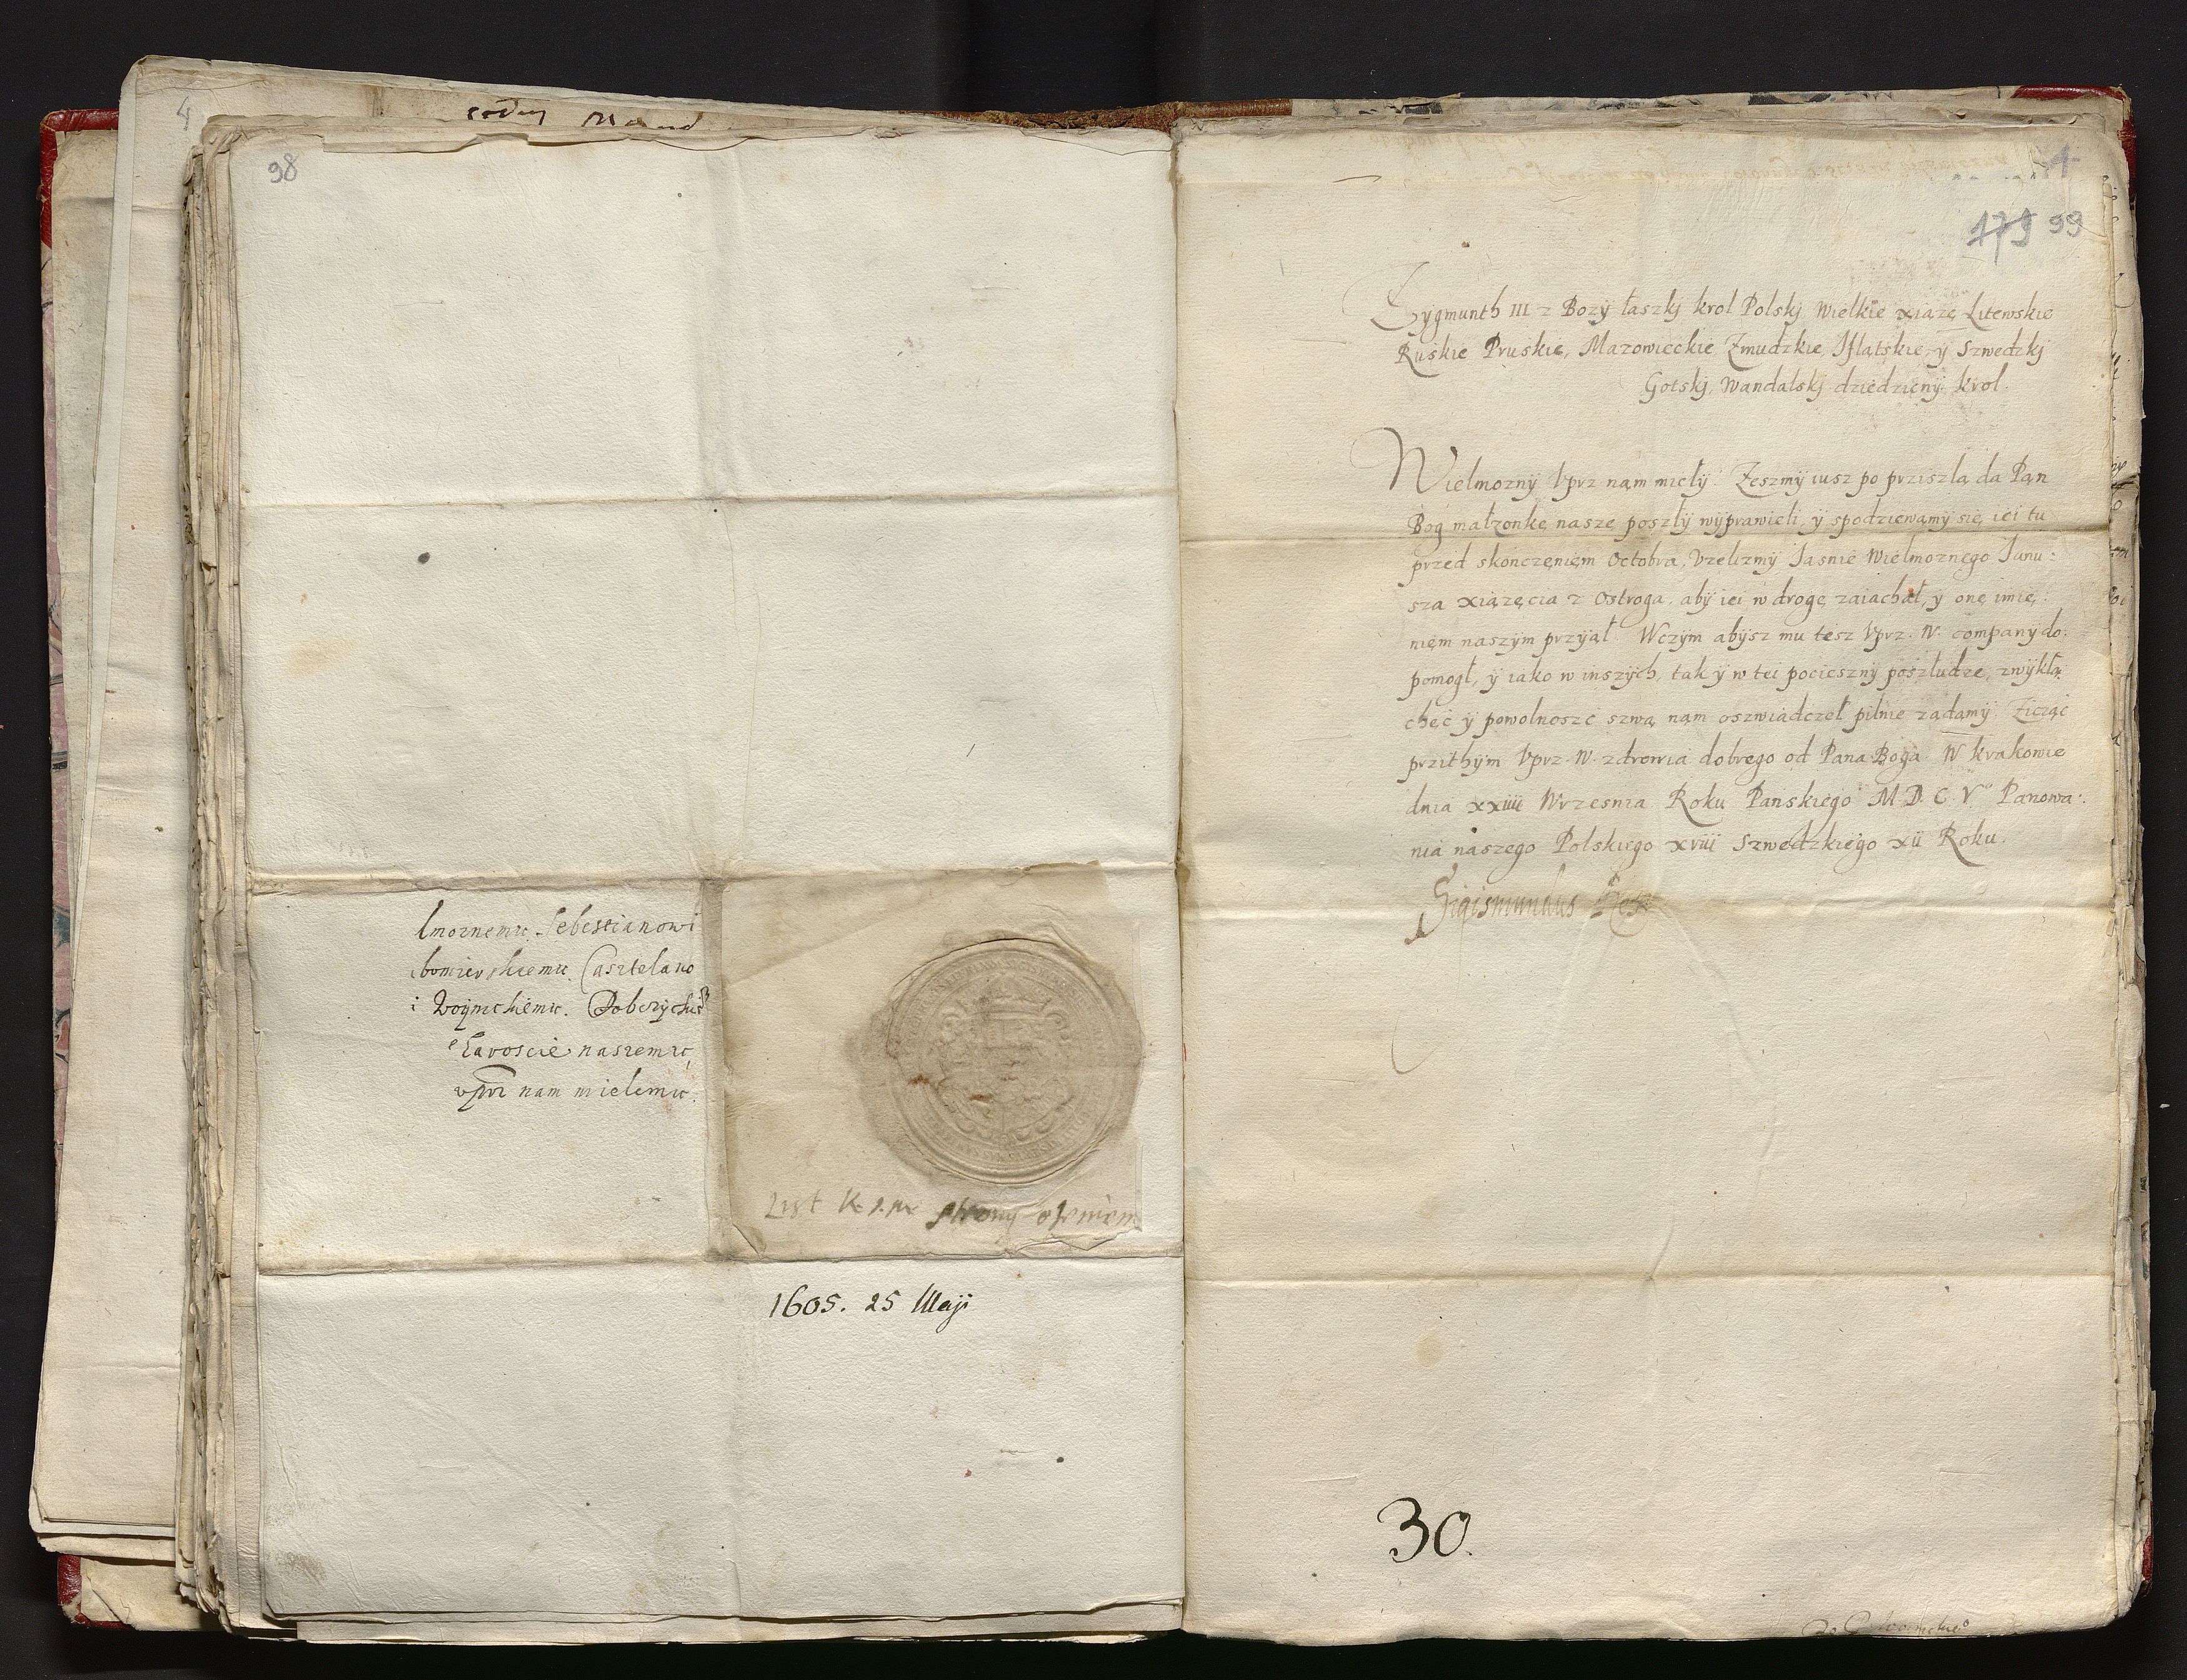 98
lmoznemu Sebestianowi
bomierskiemu Casztelano
i Woynickiemu. Dobczyckie
staroscie naszemu,
vprz nam mielemu.
List K. J. M.
1605. 25 Maji
179 99
Zygmunth III z Bozÿ łaszkj krol Polskj Wielkie xiązę Litewskie
Ruskie Pruskie, Mazowieckie Zmudzkie, Iflatskie, ÿ Szwedzkj
Gotskj, Wandalskj dziedzicnÿ krol.
Wielmoznÿ Vprz nąm miełÿ. Zeszmÿ iusz po prziszłą da Pąn
Bog małzonkę naszę posłÿ wÿprawieli, ÿ spodziewamÿ się iei tu
przed skonczęnięm Octobra, Vzelizmÿ Iasnie Wielmoznego Ianu:
sza xiązęcia z Ostroga, abÿ iei w drogę zaiachał, ÿ onę imię:
nięm naszÿm przÿiął Wczÿm abÿsz mu tesz Vprz. W. companÿ do:
pomogł, ÿ iako w inszÿch, tak ÿ w tei pociesznÿ poszłudze, zwÿkłą
chęć ÿ powolnoszć szwą nąm oszwiadczeł pilnie ządamÿ. Zicząc
przithÿm Vprz. W. zdrowia dobrego od Pana Boga W krakowie
dnia xxiiii Wrzesnia Roku Panskiego M. D. C. Vº Panowa:
nia naszego Polskiego xviii Szwedzkiego xii Roku.
Sigismundus Rex
30.